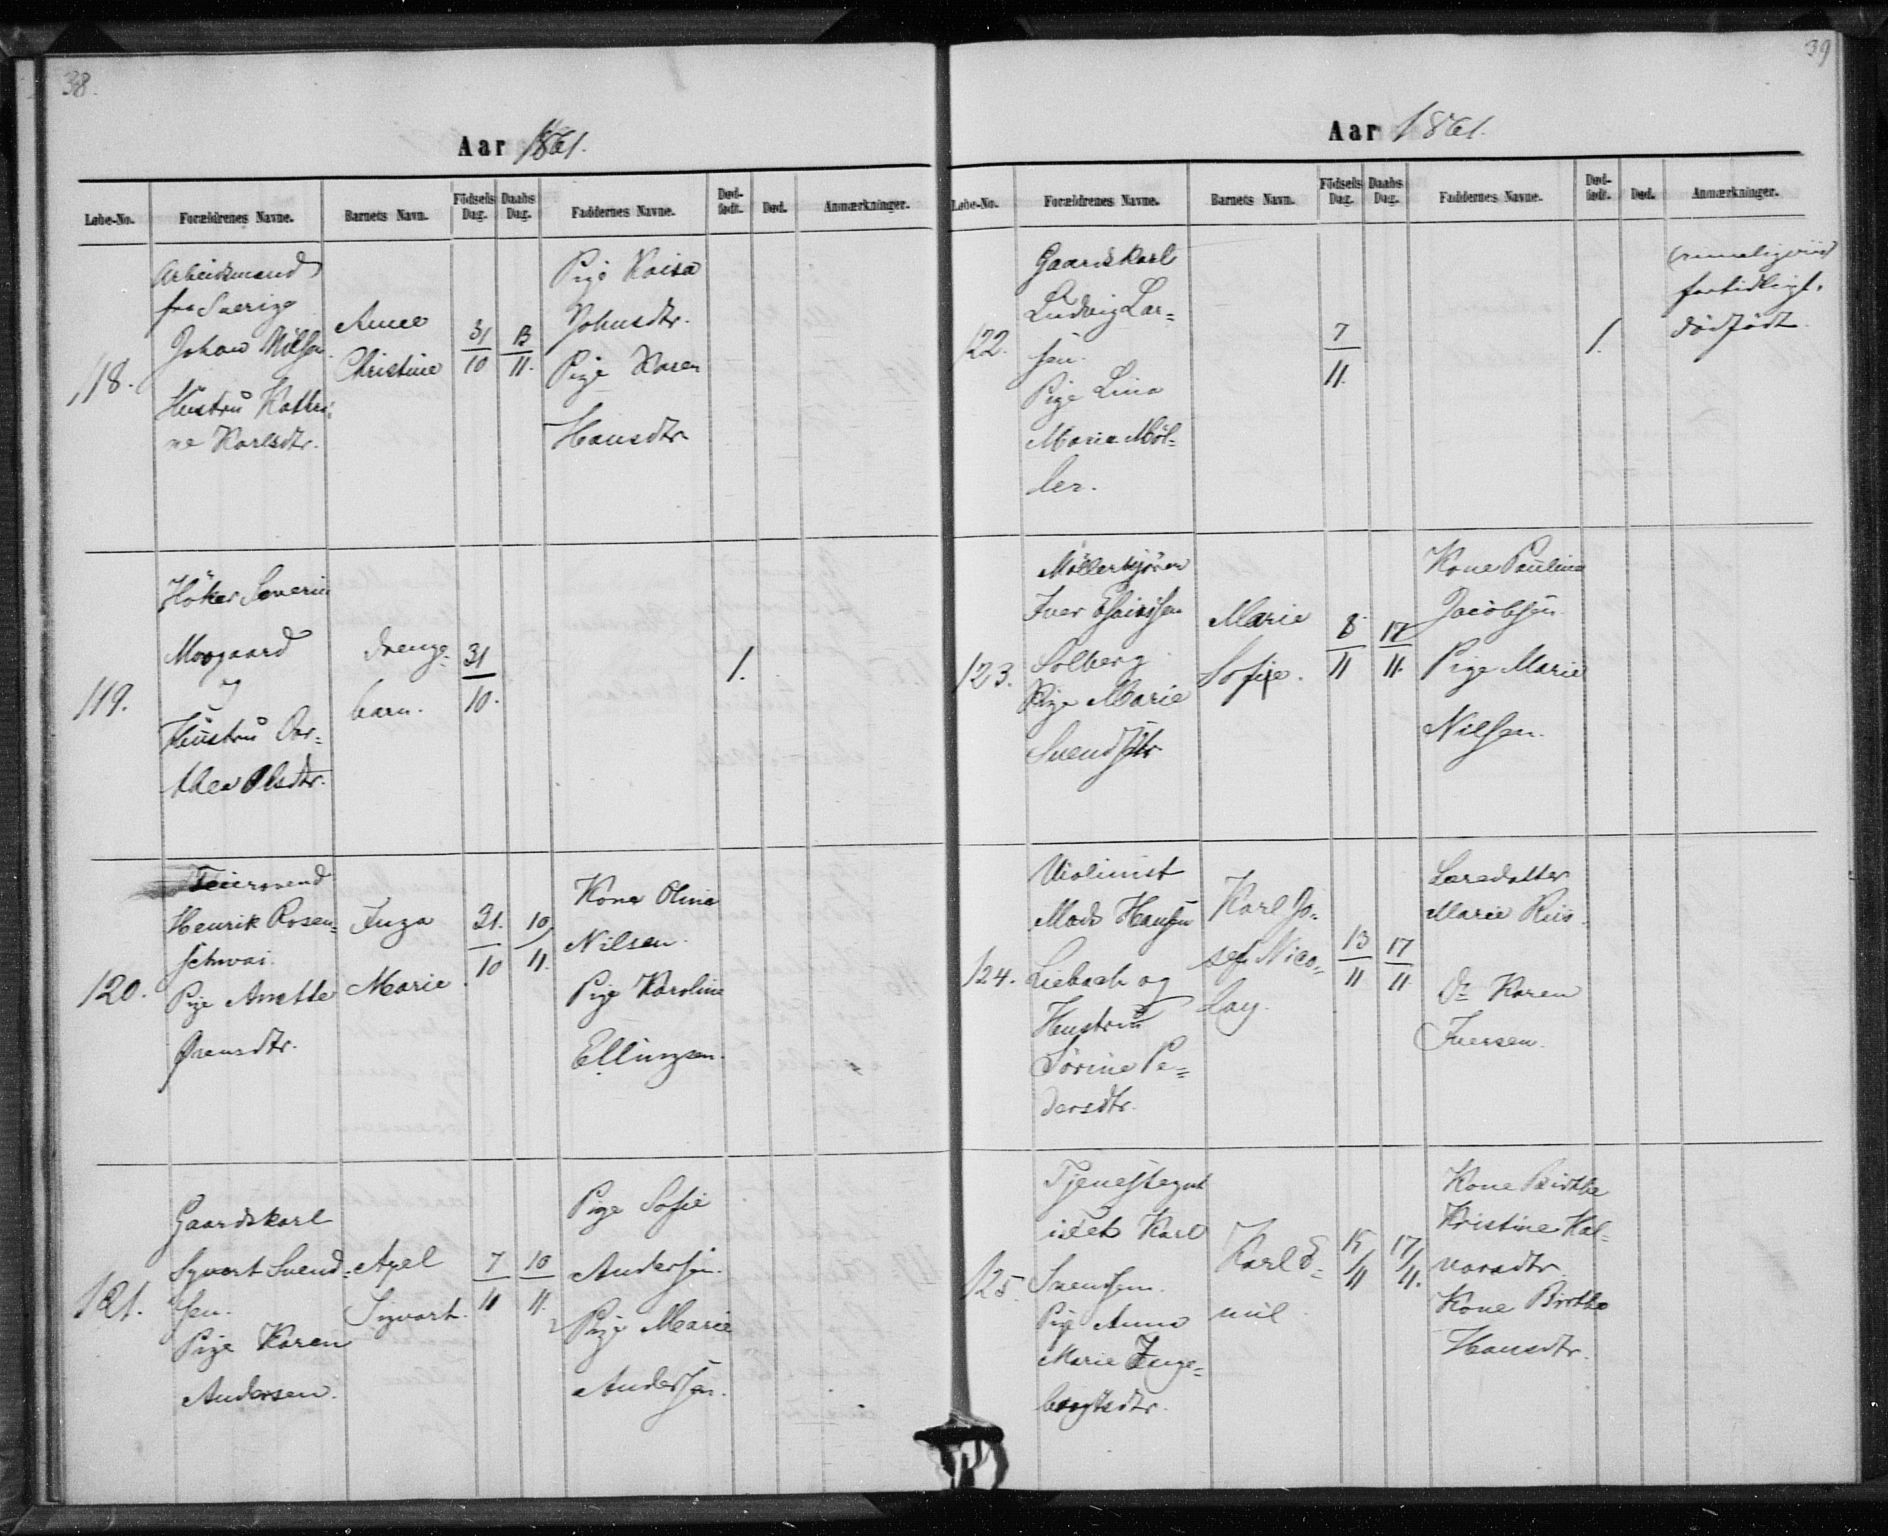 38.
Aar 1861.
Løbe-No. Forældrenes Navne. Barnets Navn. Födsels Dag. Daabs Dag. Faddernes Navne. Død-født. Død. Anmærkninger.
118.
Arbeidsmand
fra Sverige
Johan Nilsen
Hustru Kathri-
ne Karlsdtr.
Anne
Christine
31/10
13/11.
Pige Kaisa
Johnsdtr.
Pige Karen
Hansdtr
119.
Höker Severin
Moogaard
og
Hustru Dor-
thea Olsdtr.
Drenge-
barn.
31/10.
1.
120.
Feiersvend
Henrik Rosen-
schwai.
Pige Anette
Svensdtr.
Inga
Marie
21./10
10/11.
Kone Olina
Nilsen.
Pige Karoline
Ellingsen.
121.
Gaardskarl
Syvert Svend-
sen.
Pige Karen
Andersen.
Axel
Syvert.
7/11
10/11.
Pige Sofie
Andersen.
Pige Marie
Andersen.
39
Aar 1861.
Løbe-No. Forældrenes Navne. Barnets Navn. Födsels Dag. Daabs Dag. Faddernes Navne. Død-født. Død. Anmærkninger.
122.
Gaardskarl
Ludvig Lar-
sen.
Pige Lina
Maria Møl-
ler.
7/11.
1.
fortidligt.
dødfødt.
123.
Møllerkjører
Iver
Solberg
Pige Marie
Svendsdtr
Marie
Sofie.
8/11
17/11.
Kone Pauline
Jacobsen
Pige Marie
Nilsen.
124.
Violinist
Mads Hansen
Liebach og
Hustru
Sörine Pe-
dersdtr.
Karl Jo-
sef Nico-
lay.
13/11
17/11.
Marie Riis.
Do Karen
Iversen.
125.
Tjenestegut
Karl
Svendsen.
Pige Anna
Marie Inge-
bregtsdtr.
Karl E-
mil.
15/11
17/11.
Kone Birthe
Kristine Hal-
vorsdtr.
Kone Birthe
Hansdtr.